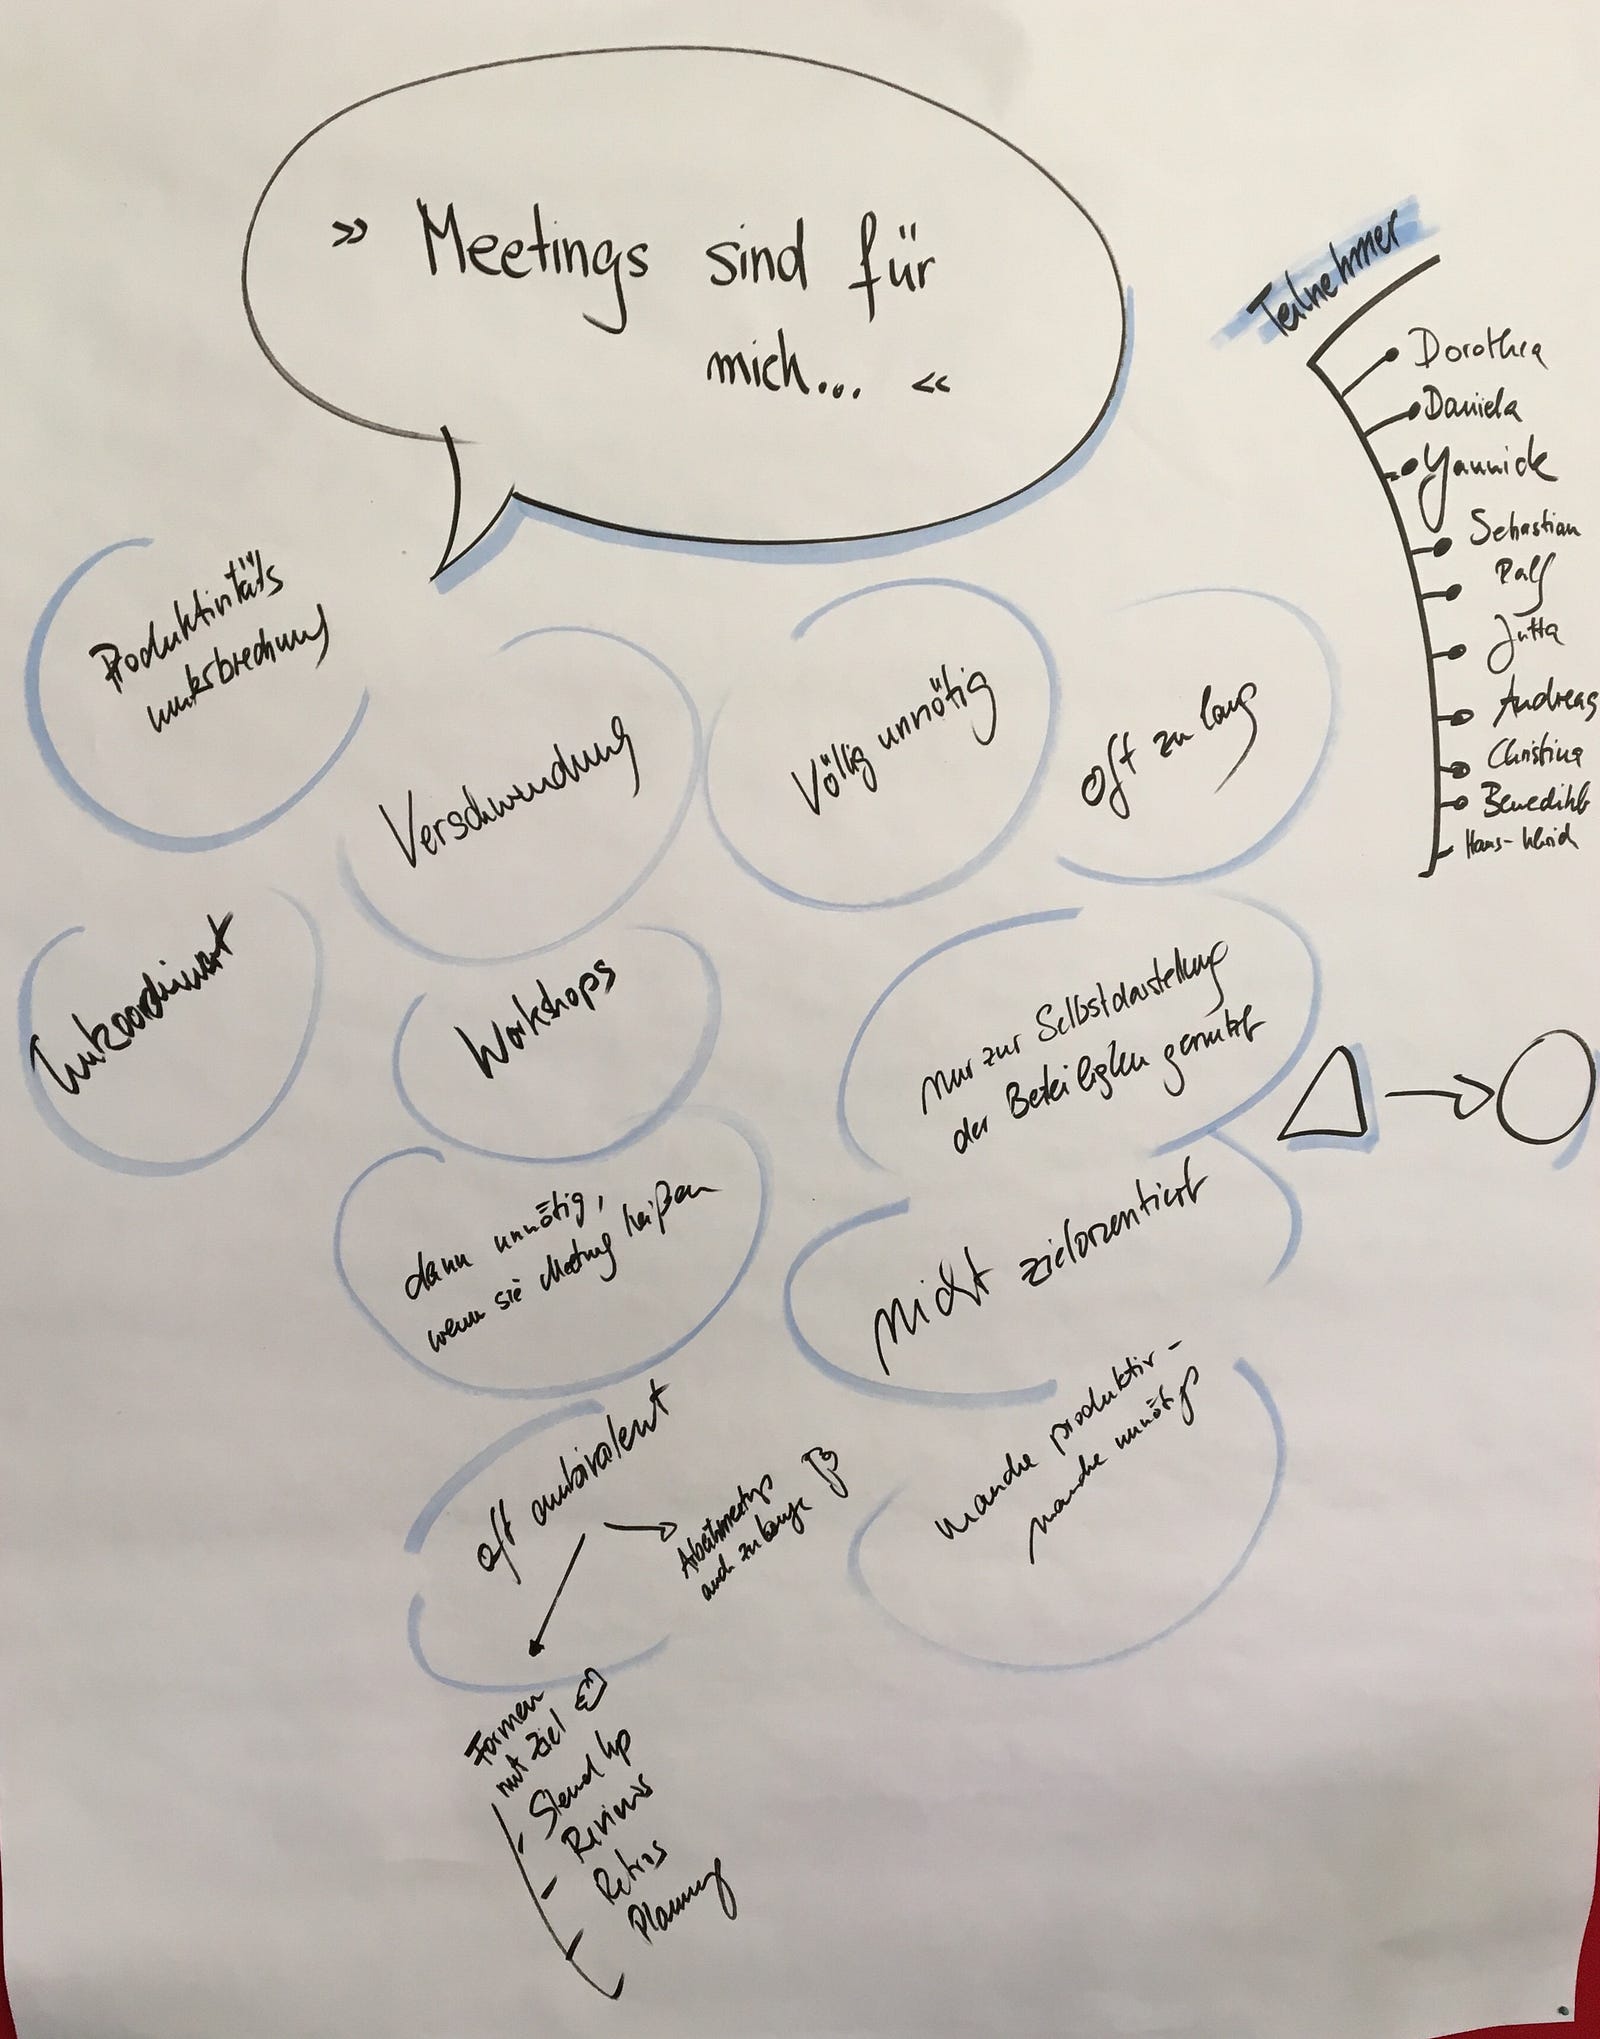 » Meetings sind für
mich... «
Teilnehmer
Dorothea
Daniela
Yannick
Sebastian
Ralf
Jutta
Andreas
Christina
Benedikt
Hans-
Produktivitäts
unterbrechung
Verschwendung
Völlig unnötig
oft zu lang
Unkoordiniert
Workshops
nur zur Selbstdarstellung
der Beteiligten genutzt
dann unnötig,
wenn sie Meeting heißen
nicht zielorientiert
oft ambivalent
Arbeitsmeetings
auch zu lange
manche produktiv -
manche unnötig
Formen
mit Ziel
Stand Up
Reviews
Retros
Planning